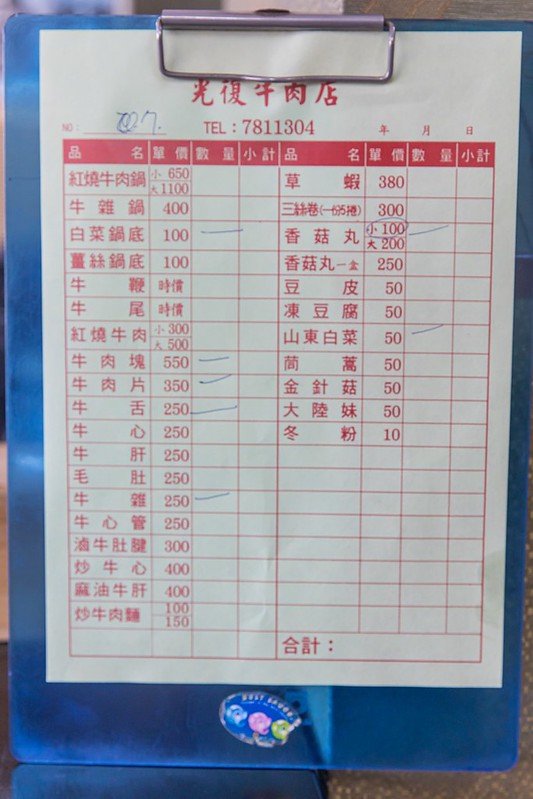 光復牛肉店
NO: TEL:7811304 年 月 日
品名 單價 數量 小計 品名 單價 數量 小計
紅燒牛肉鍋 小 650 大 1100
牛雜鍋 400
白菜鍋底 100
薑絲鍋底 100
牛鞭 時價
牛尾 時價
紅燒牛肉 小 300 大 500
牛肉塊 550
牛肉片 350
牛舌 250
牛心 250
牛肝 250
毛肚 250
牛雜 250
牛心管 250
滷牛肚腱 300
炒牛心 400
麻油牛肝 400
炒牛肉麵 100 150
草蝦 380
三絲卷(一份5捲) 300
香菇丸 小 100 大 200
香菇丸一盒 250
豆皮 50
凍豆腐 50
山東白菜 50
茼蒿 50
金針菇 50
大陸妹 50
冬粉 10
合計: